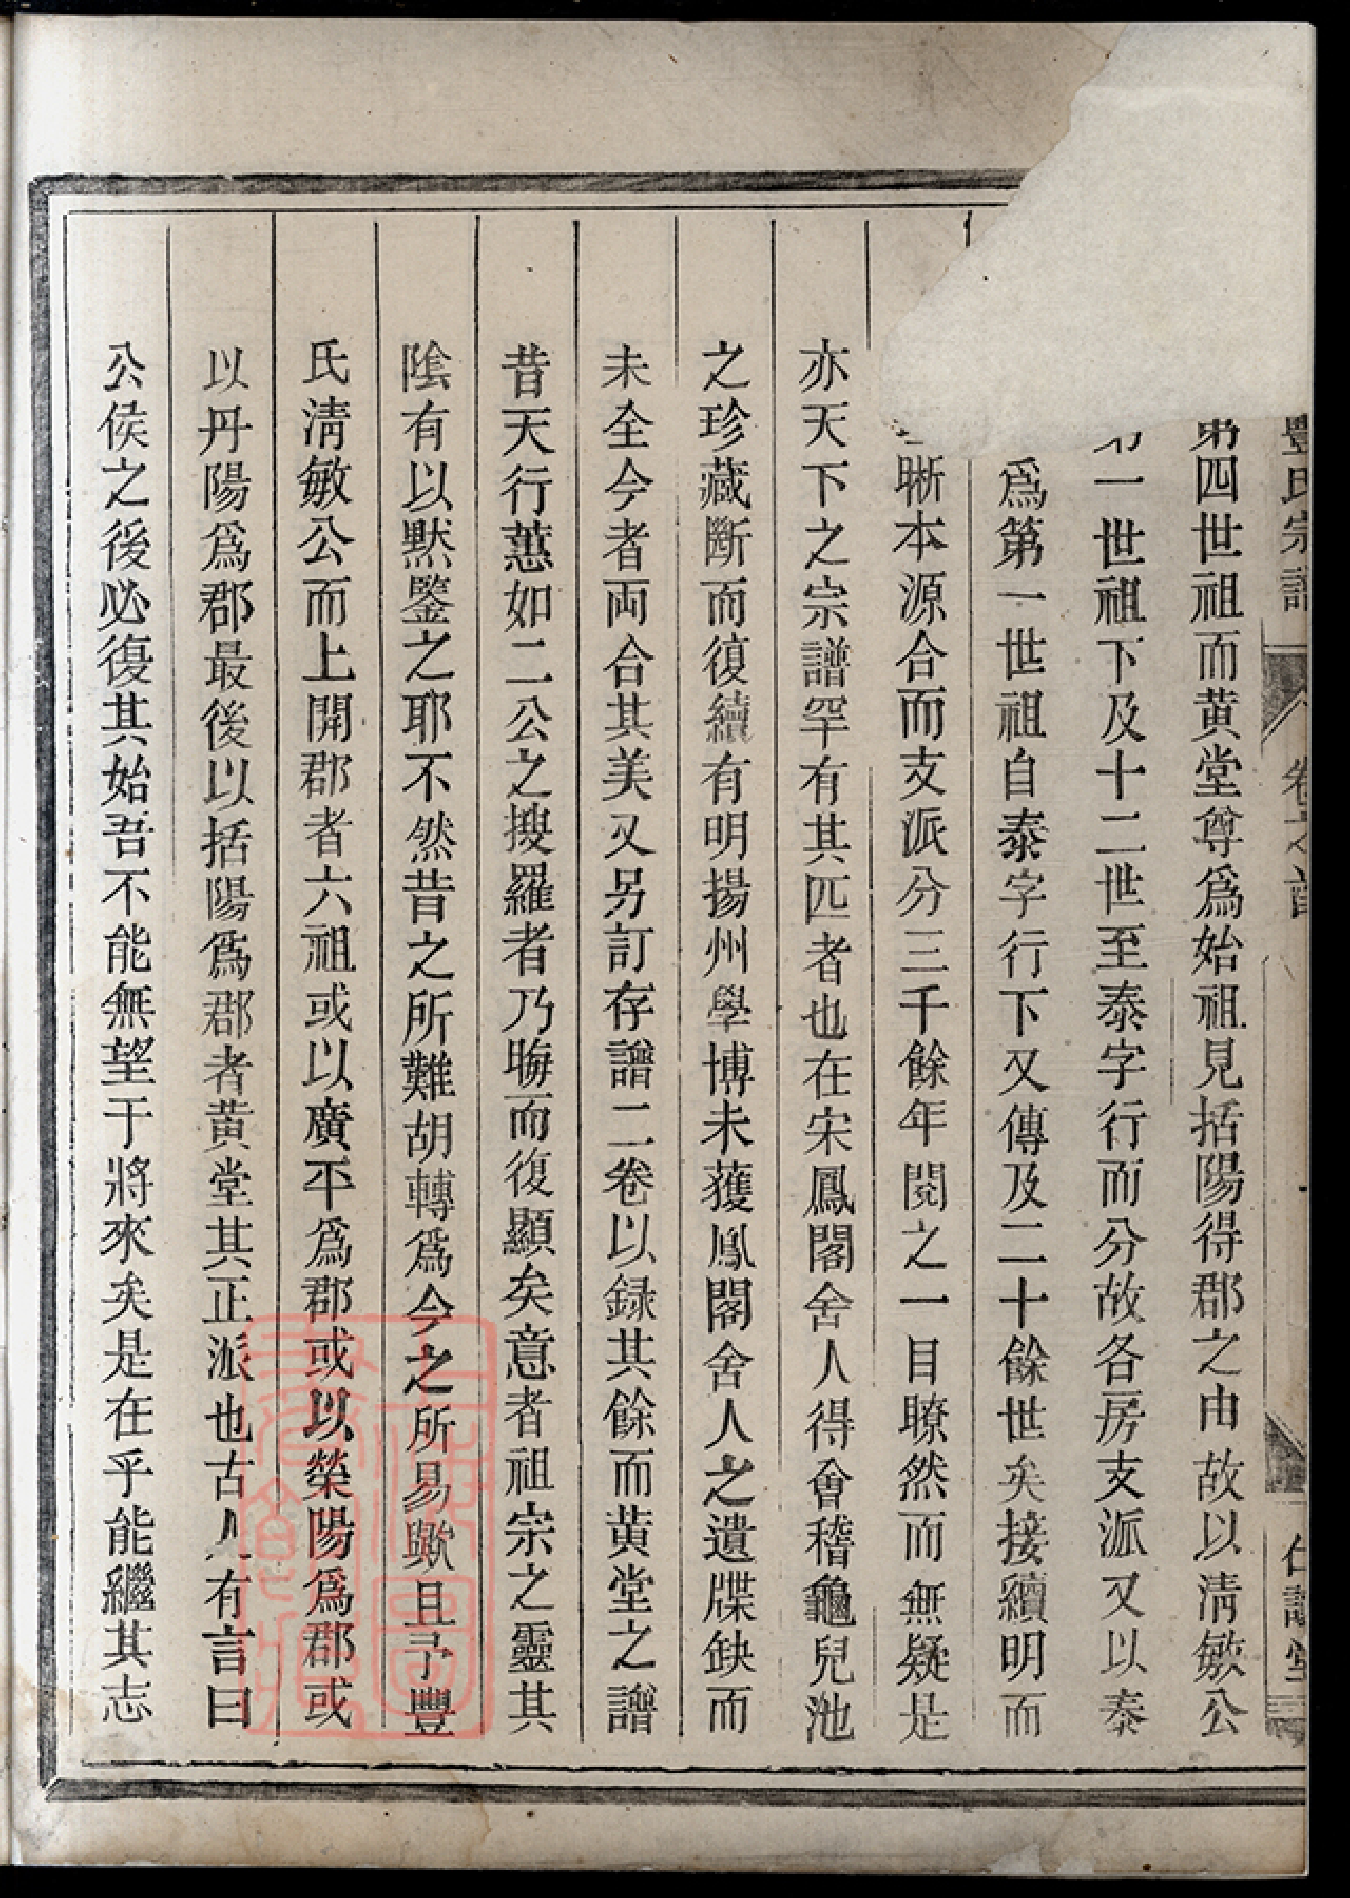 豐氏宗譜 卷之首 一
第四世祖而黃堂尊爲始祖見括陽得郡之由故以淸敏公
第一世祖下及十二世至泰字行而分故各房支派又以泰
爲第一世祖自泰字行下又傳及二十餘世矣接續明而
晰本源合而支派分三千餘年閱之一目瞭然而無疑是
亦天下之宗譜罕有其匹者也在宋鳳閣舍人得會稽龜兒池
之珍藏斷而復續有明揚州學博未獲鳳閣舍人之遺牒缺而
未全今者兩合其美又另訂存譜二卷以録其餘而黃堂之譜
昔天行蕙如二公之搜羅者乃晦而復顯矣意者祖宗之靈其
陰有以默鑒之耶不然昔之所難胡轉爲今之所易歟且予豐
氏淸敏公而上開郡者六祖或以廣平爲郡或以滎陽爲郡或
以丹陽爲郡最後以括陽爲郡者黃堂其正派也古人有言曰
公侯之後必復其始吾不能無望于將來矣是在乎能繼其志
上海圖書館藏